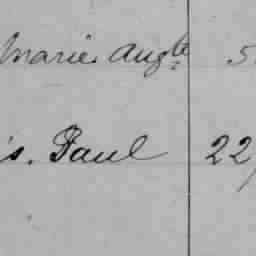 Marie Augle 5
s. Paul 22